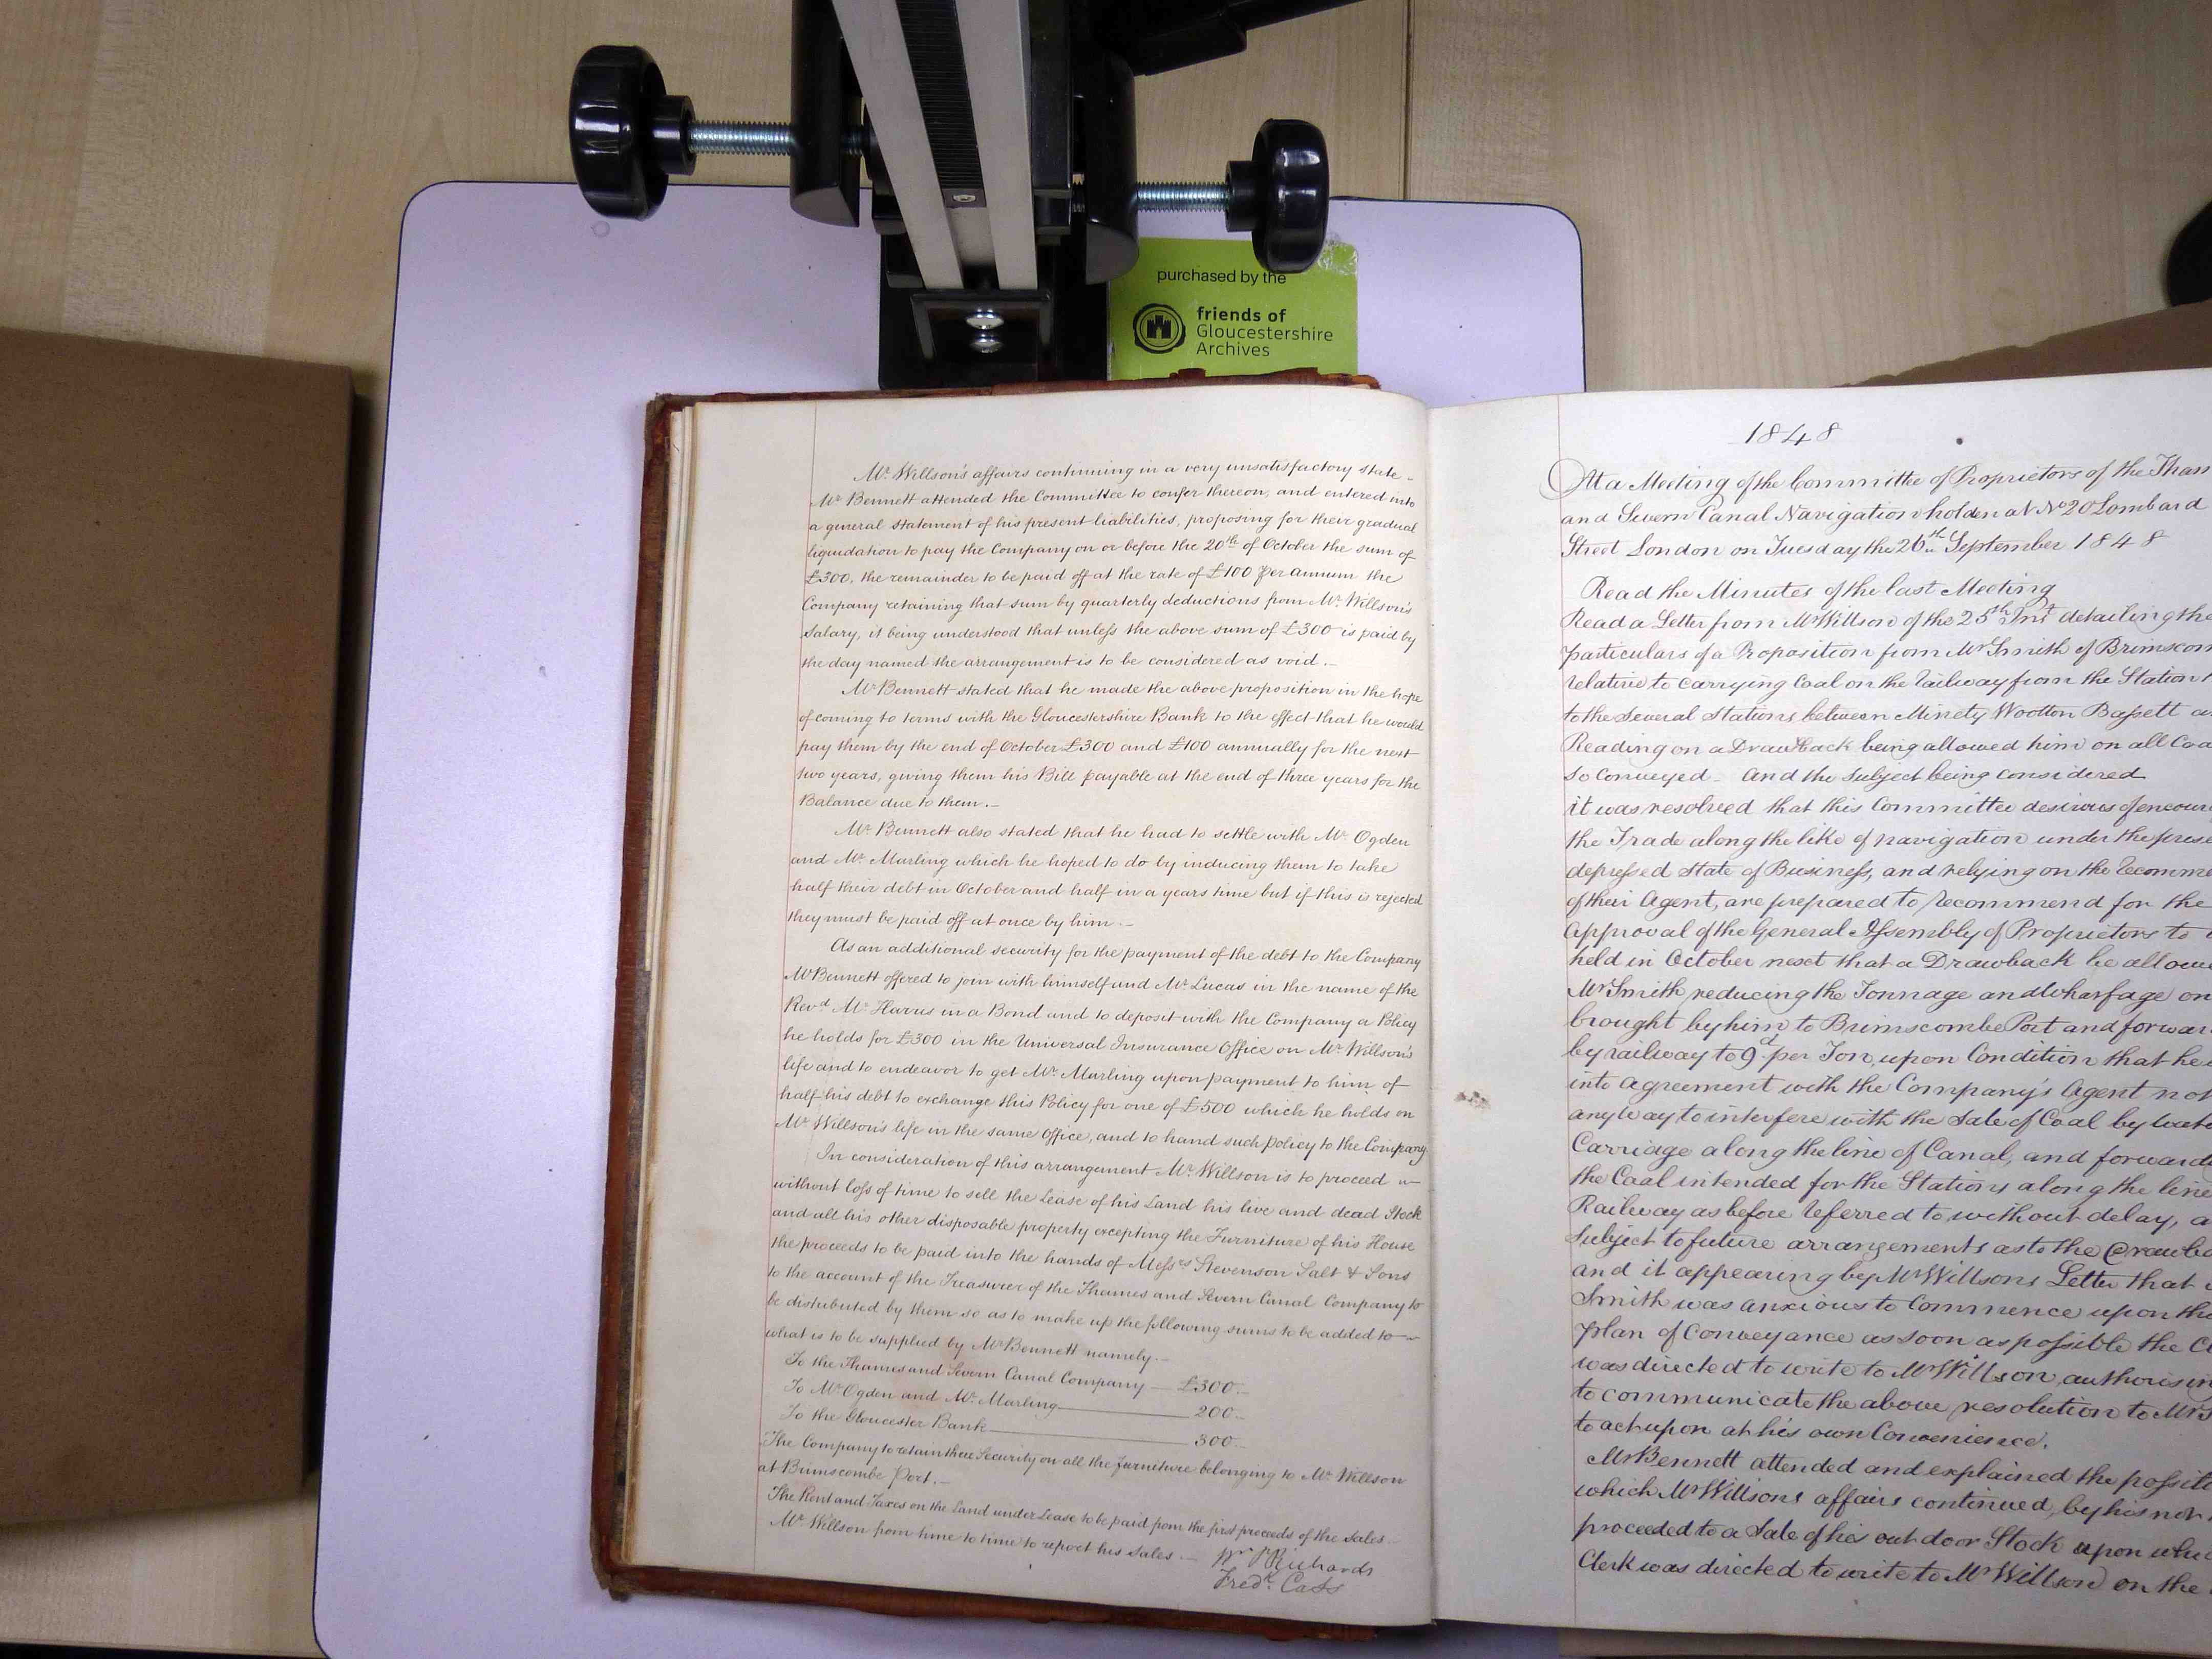 purchased by the
friends of
Gloucestershire
Archives
Mr. Willson's affairs continuing in a very unsatisfactory state
Mr Bennett attended the Committee to confer thereon, and entered into
a general statement of his present liabilities, proposing for their gradual
liquidation to pay the Company on or before the 20th of October the sum of
£300, the remainder to be paid off at the rate of £100 per annum the
Company retaining that sum by quarterly deductions from Mr. Willson's
Salary, it being understood that unless the above sum of £300 is paid by
the day named the arrangement is to be considered as void.—
Mr Bennett stated that he made the above proposition in the hope
of coming to terms with the Gloucestershire Bank to the effect that he would
pay them by the end of October £300 and £100 annually for the next
two years, giving them his Bill payable at the end of three years for the
Balance due to them.—
Mr. Bennett also stated that he had to settle with Mr Ogden
and Mr. Marling which he hoped to do by inducing them to take
half their debt in October and half in a years time but if this is rejected
they must be paid off at once by him.—
As an additional security for the payment of the debt to the Company
Mr Bennett offered to join with himself and Mr Lucas in the name of the
Revd. Mr Harris in a Bond and to deposit with the Company a Policy
he holds for £300 in the Universal Insurance Office on Mr. Willson's
life and to endeavor to get Mr. Marling upon payment to him of
half his debt to exchange this Policy for one of £500 which he holds on
Mr Willson's life in the same Office, and to hand such policy to the Company
In consideration of this arrangement Mr. Willson is to proceed
without loss of time to sell the Lease of his Land his live and dead Stock
and all his other disposable property excepting the Furniture of his House
the proceeds to be paid into the hands of Messrs Stevenson Salt & Sons
to the account of the Treasurer of the Thames and Severn Canal Company to
be distributed by them so as to make up the following sums to be added to
what is to be supplied by Mr Bennett namely.—
To the Thames and Severn Canal Company — £300.—
To Mr Ogden and Mr. Marling — 200.—
To the Gloucester Bank — 300.—
The Company to retain their Security on all the furniture belonging to Mr Willson
at Brimscombe Port.—
The Rent and Taxes on the Land under Lease to be paid from the first proceeds of the sales.—
Mr Willson from time to time to report his Sales.—
Wm P Richards
Fredk. Cass
1848
At a Meeting of the Committee of Proprietors of the Tham
and Severn Canal Navigation holden at No 20 Lombard
Street London on Tuesday the 26th September 1848
Read the Minutes of the last Meeting
Read a Letter from Mr Willson of the 25th Inst detailing the
particulars of a Proposition from Mr Smith of Brimscom
relative to carrying Coal on the Railway from the Station
to the several Stations between Minety Wootton Bassett
Reading on a Drawback being allowed him on all Coa
so Conveyed. And the subject being considered
it was resolved that this Committee desirous of encour
the Trade along the like of navigation under the prese
depressed State of Business, and relying on the Recomme
of their Agent, are prepared to recommend for the
approval of the General Assembly of Proprietors to
held in October next that a Drawback be allowe
Mr Smith reducing the Tonnage and Wharfage on
brought by him to Brimscombe Port and forwar
by railway to 9d per Ton, upon Condition that he
into agreement with the Company's Agent not
any way to interfere with the Sale of Coal by wat
Carriage along the line of Canal, and forward
the Coal intended for the Stations along the line
Railway as before referred to without delay, a
subject to future arrangements as to the Drawba
and it appearing by Mr Willsons Letter that
Smith was anxious to Commence upon the
plan of Conveyance as soon as possible the Cl
was directed to write to Mr Willson, authorisin
to communicate the above resolution to Mr S
to act upon at his own Convenience.
Mr Bennett attended and explained the positi
which Mr Willsons affairs continued, by his not
proceeded to a Sale of his out door Stock upon whi
Clerk was directed to write to Mr Willson on the